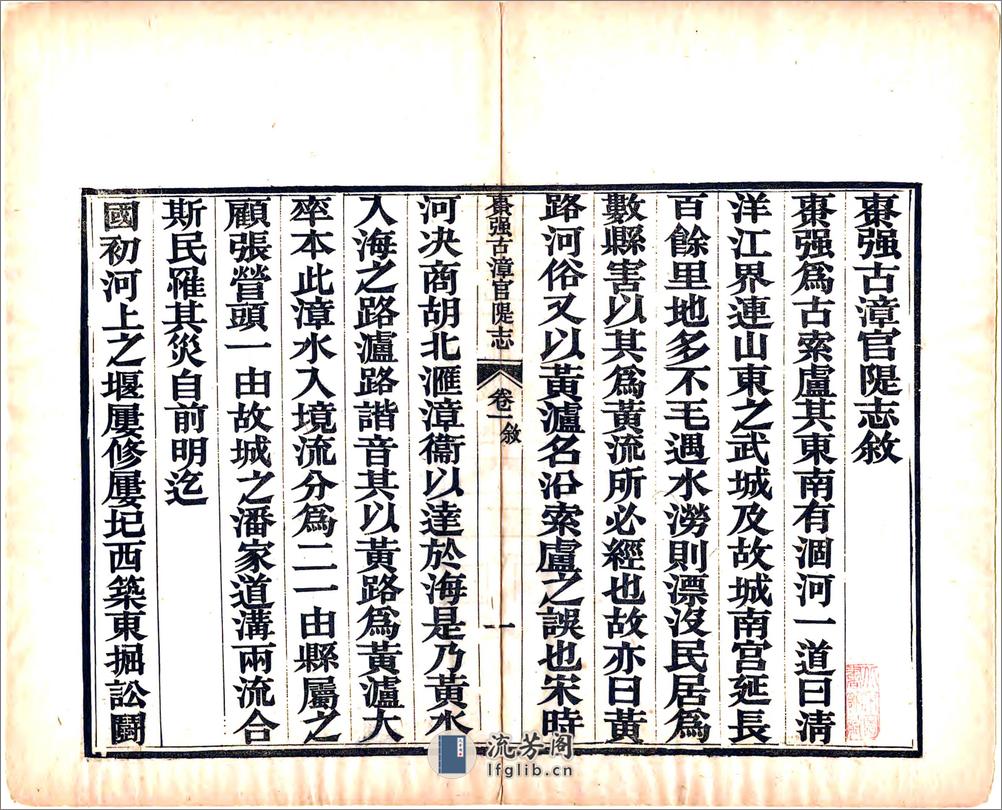 棗强古漳官隄志敘
棗强爲古索盧其東南有涸河一道曰淸
洋江界連山東之武城及故城南宫延長
百餘里地多不毛遇水澇則漂沒民居爲
數縣害以其爲黃流所必經也故亦曰黃
路河俗又以黃瀘名沿索盧之誤也宋時
棗强古漳官隄志
卷一敘
一
河决商胡北滙漳衞以達於海是乃黃水
入海之路瀘路諧音其以黃路爲黃瀘大
率本此漳水入境流分爲二一由縣屬之
顧張營頭一由故城之潘家道溝兩流合
斯民罹其災自前明迄
國初河上之堰屢修屢圮西築東掘訟鬪
流芳阁
lfglib.cn